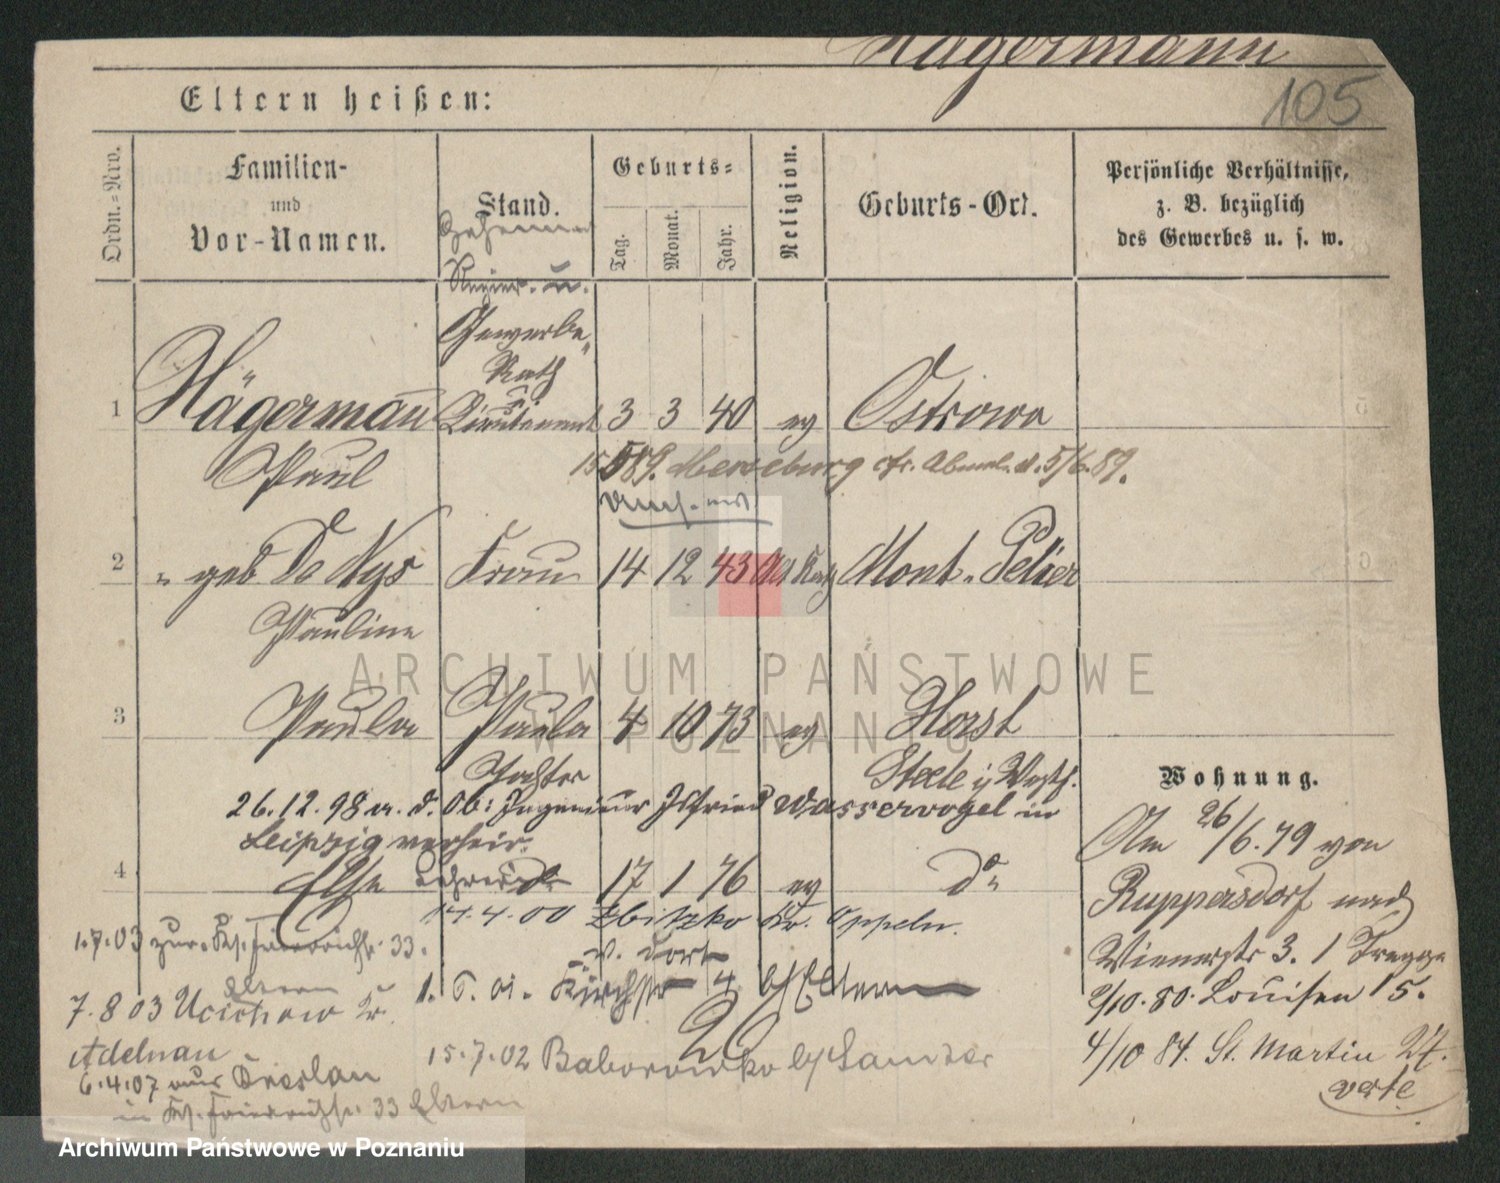 Hägermann
105
Eltern heißen:
Ordn.-Nro.
Familien-
und
Vor-Namen.
Stand.
Geburts-
Tag.
Monat.
Jahr.
Religion.
Geburts-Ort.
Persönliche Verhältnisse,
z. B. bezüglich
des Gewerbes u. s. w.
Geheimer
Regier. u.
Gewerbe
Rath
1 Hägermann Lieutenant 3 3 40 ev Ostrowo
Paul
15 5 89. Merseburg cfr. Abmel. d. 5/6. 89.
2 " geb De Nys Frau 14 12 43 Mont-Pelier
Pauline
ARCHIWUM PAŃSTWOWE
W POZNANIU
3 Paula Paula 4 10 73 ev Horst
Tochter Steele i/ Westf.
26.12.98 a. d. Ob: Ingenieur Isfried Wasservogel in
Leipzig verheir.
4 Else 17 1 76 ev do
14.4.00 Zbitzko Kr. Oppeln.
v. dort
1.7.03 zur. Friedrichstr. 33.
Eltern
1. 01. Kirchstr 4 b/Eltern
26
7.8 03 Uciechow Kr.
Adelnau
15.7.02 Baborowko b/Sander
6.4.07 aus Breslau
in Friedrichstr. 33 Eltern
Wohnung.
Am 26/6. 79 von
Ruppersdorf nach
Wienerstr 3. 1 Treppe
2/10. 80. Louisen 15.
4/10 84. St. Martin 27.
verte
Archiwum Państwowe w Poznaniu